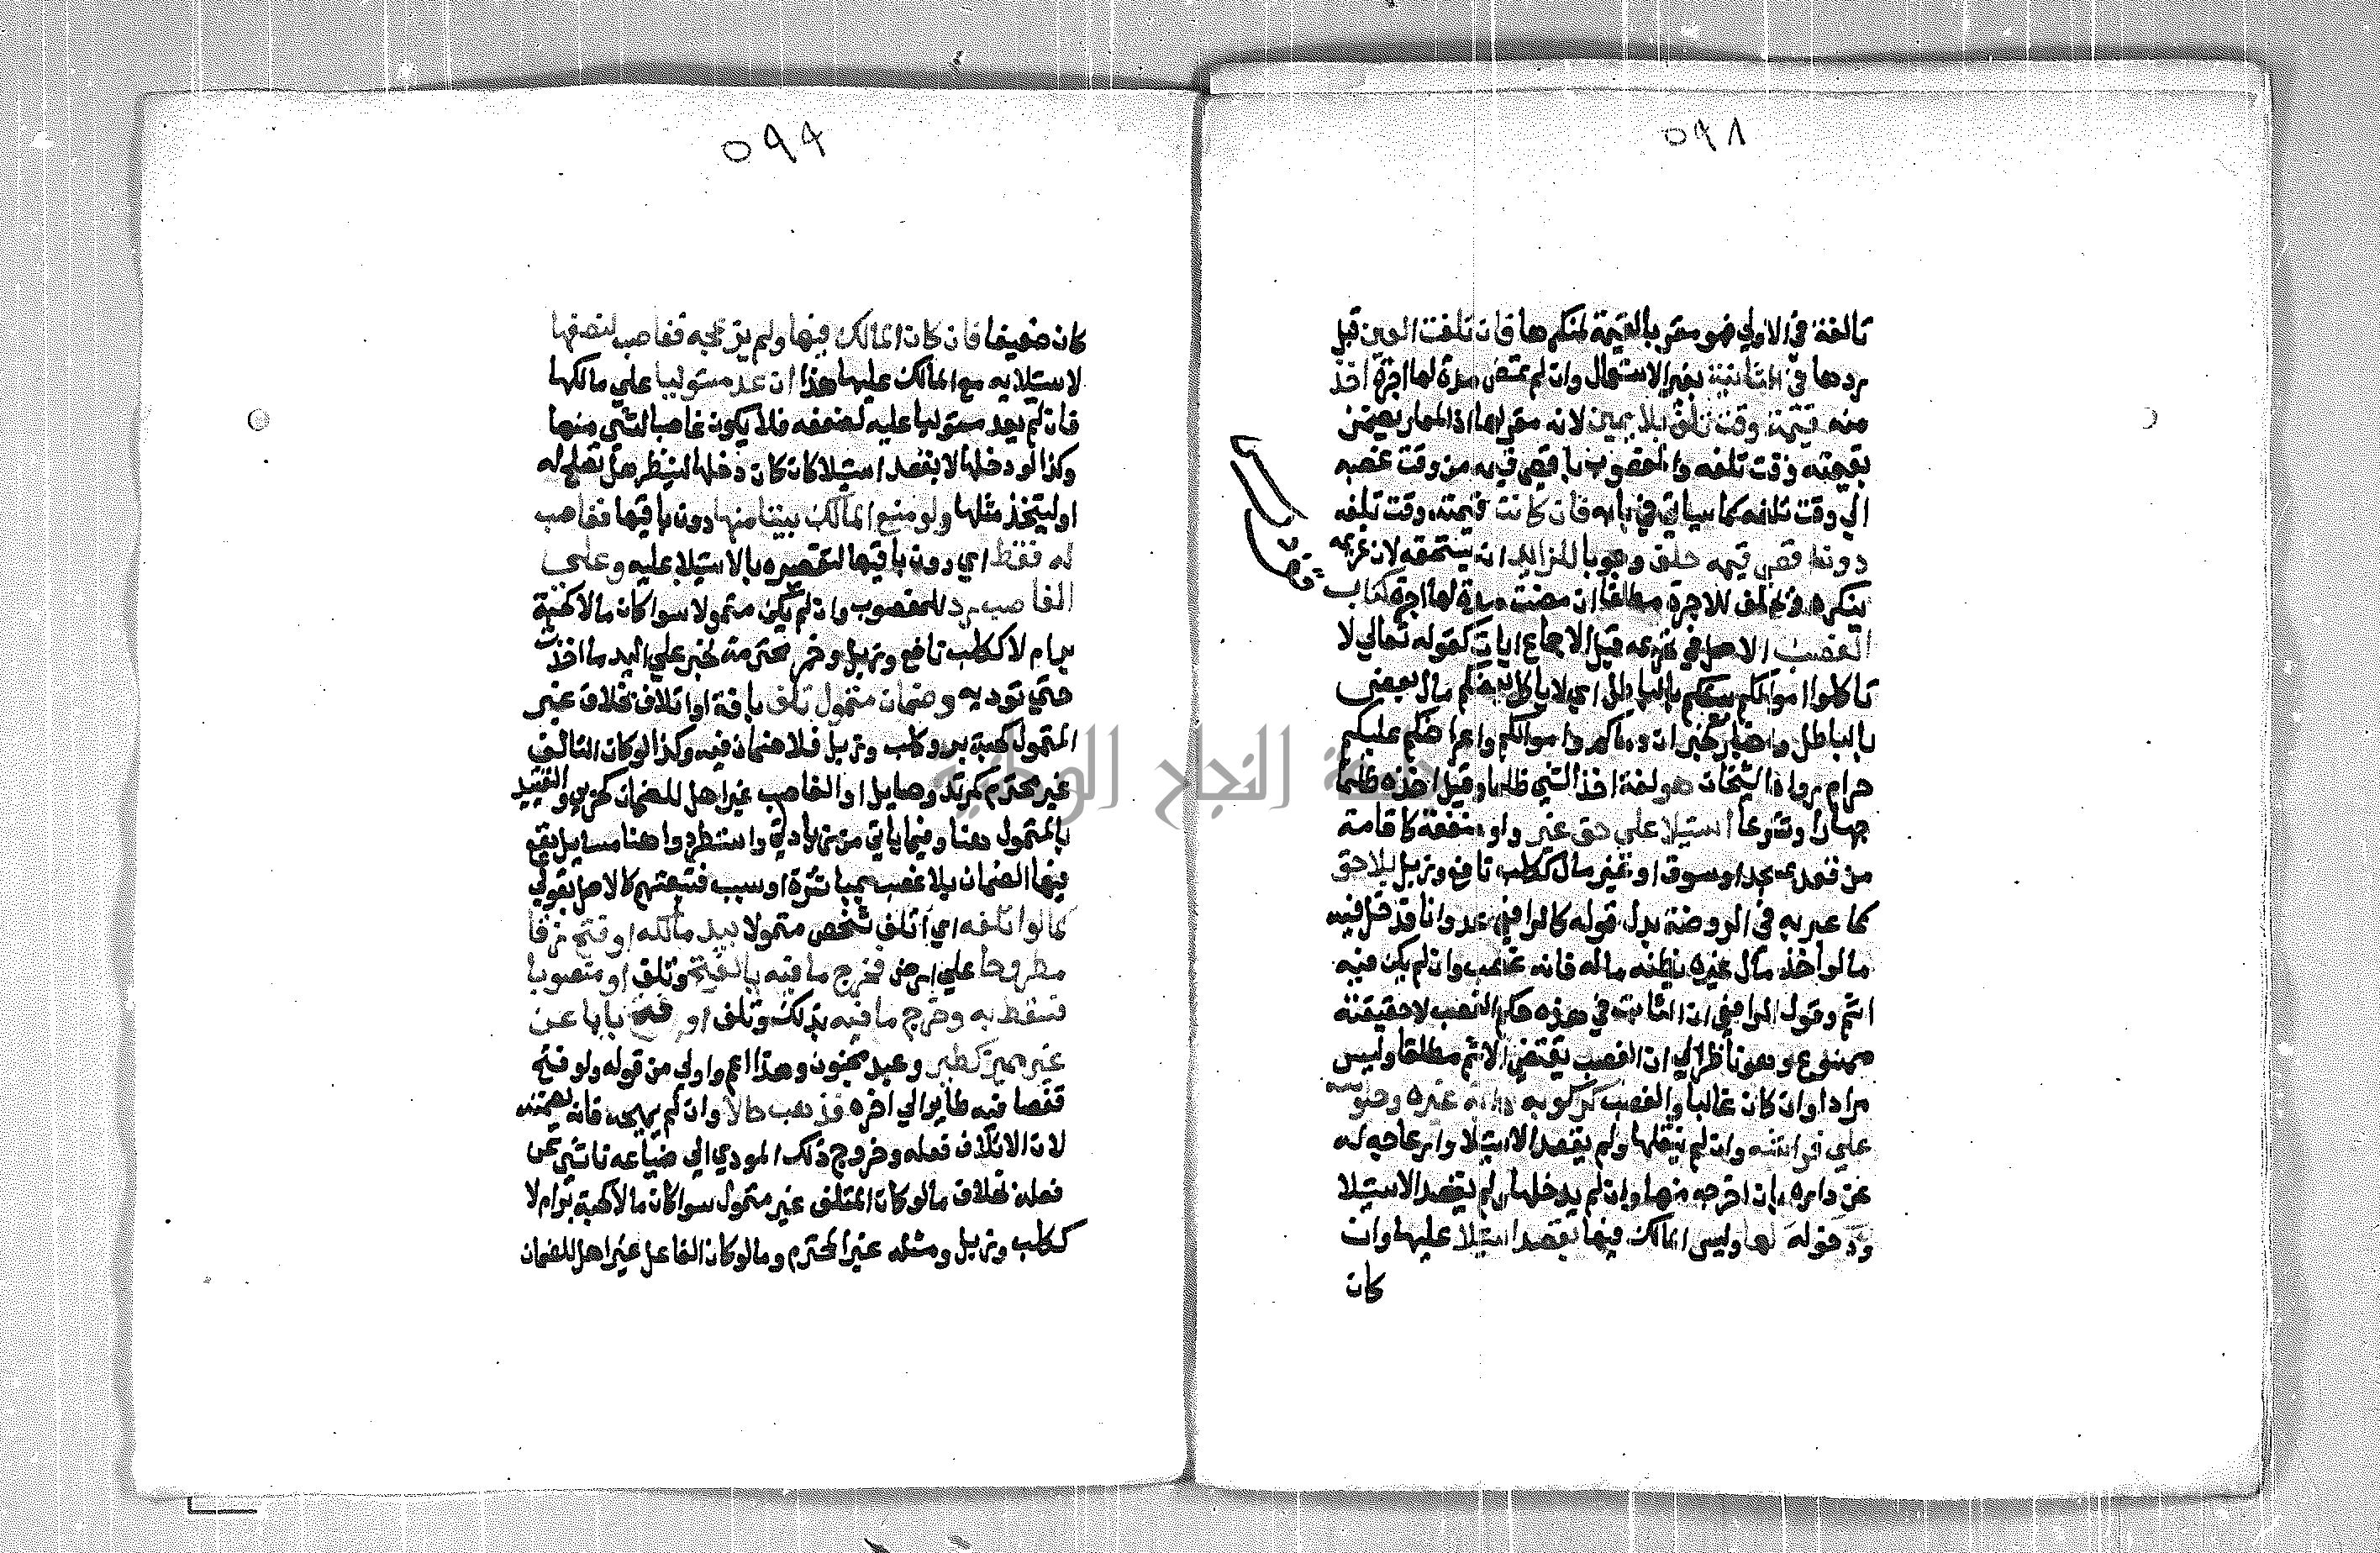 ٥٩٨
تالفة في الاولي فهو مقر بالقيمة لمنكرها فان تلفت العين قبل
ردها في الثانية بغير الاستعمال وان لم تمض مدة لها اجرة اخذ
منه قيمة وقت تلف بلا يمين لانه مقر لها اذ المعار يضمن
بقيمته وقت تلفه والمغصوب باقصي قيمه من وقت غصبه
الي وقت تلفه كما سياتي في بابه فان كانت قيمته وقت تلفه
دون اقصي قيمه حلف وجوبا للزايد انه يستحقه لان غريمه
ينكره ويحلف للاجرة مطلقا ان مضت مدة لها اجرة كتاب
الغصب الاصل في تحريمه قبل الاجماع ايات كقوله تعالي لا
تاكلوا اموالكم بينكم بالباطل اي لا ياكل بعضكم مال بعض
بالباطل واخبار كخبر ان دماكم واموالكم واعراضكم عليكم
حرام رواه الشيخان هو لغة اخذ الشي ظلما وقيل اخذه ظلما
جهارا وشرعا استيلا علي حق غير ولو منفعة كاقامة
من قعد بمسجد او سوق او غير مال ككلب نافع وزبل بلا حق
كما عبر به في الروضة بدل قوله كالرافعي عدوانا فدخل فيه
ما لو اخذ مال غيره يظنه ماله فانه غصب وان لم يكن فيه
اثم وقول الرافعي ان الثابت في هذه حكم الغصب لا حقيقته
ممنوع وهو ناظر الي ان الغصب يقتضي الاثم مطلقا وليس
مرادا وان كان غالبا والغصب كركوبه دابة غيره وجلوسه
علي فراشه وان لم ينقلها ولم يقصد الاستيلا وازعاجه له
عن داره بان اخرجه منها وان لم يدخلها ولم يقصد الاستيلا
ودخوله لها وليس المالك فيها بقصد استيلا عليها وان
كان
٥٩٩
كان ضعيفا فان كان المالك فيها ولم يزعجه فغاصب لنصفها
لاستيلايه مع المالك عليها هذا ان عد مستوليا علي مالكها
فان لم يعد مستوليا عليه لضعفه فلا يكون غاصبا لشي منها
وكذا لو دخلها لا بقصد استيلا كان كان دخلها لينظر هل تصلح له
او ليتخذ مثلها ولو منع المالك بيتا منها دون باقيها فغاصب
له فقط اي دون باقيها لتقصيره بالاستيلا عليه وعلي
الغاصب رد للمغصوب وان لم يكن متمولا سوا كان مالا كحبة
برام لا ككلب نافع وزبل وخمر محترمة لخبر علي اليد ما اخذت
حتي توديه وضمان متمول تلف بافة او اتلاف بخلاف غير
المتمول كحبة بر وكلب وزبل فلا ضمان فيه وكذا لو كان التالف
غير محترم كمرتد وصايل او الغاصب غير اهل للضمان كحربي والتقييد
بالمتمول هنا وفيما ياتي من زيادتي واستطردوا هنا مسايل يقع
فيها الضمان بلا غصب بمباشرة او سبب فتبعتهم كالاصل بقولي
كما لو اتلفه اي اتلف شخص متمولا بيد مالكه او فتح زقا
مطروحا علي ارض فخرج ما فيه بالفتح وتلف او منصوبا
فسقط به وخرج ما فيه بذلك وتلف او فتح بابا عن
غير مميز كطير وعبد مجنون وهذا اعم واولي من قوله ولو فتح
قفصا فيه طاير الي اخره فذهب حالا وان لم يهيجه فانه يضمنه
لان الاتلاف فعله وخروج ذلك المودي الي ضياعه ناشي عن
فعله بخلاف ما لو كان المتلف غير متمول سوا كان مالا كحبة بر ام لا
ككلب وزبل ومثله غير المحترم وما لو كان الفاعل غير اهل للضمان
جامعة النجاح الوطنية